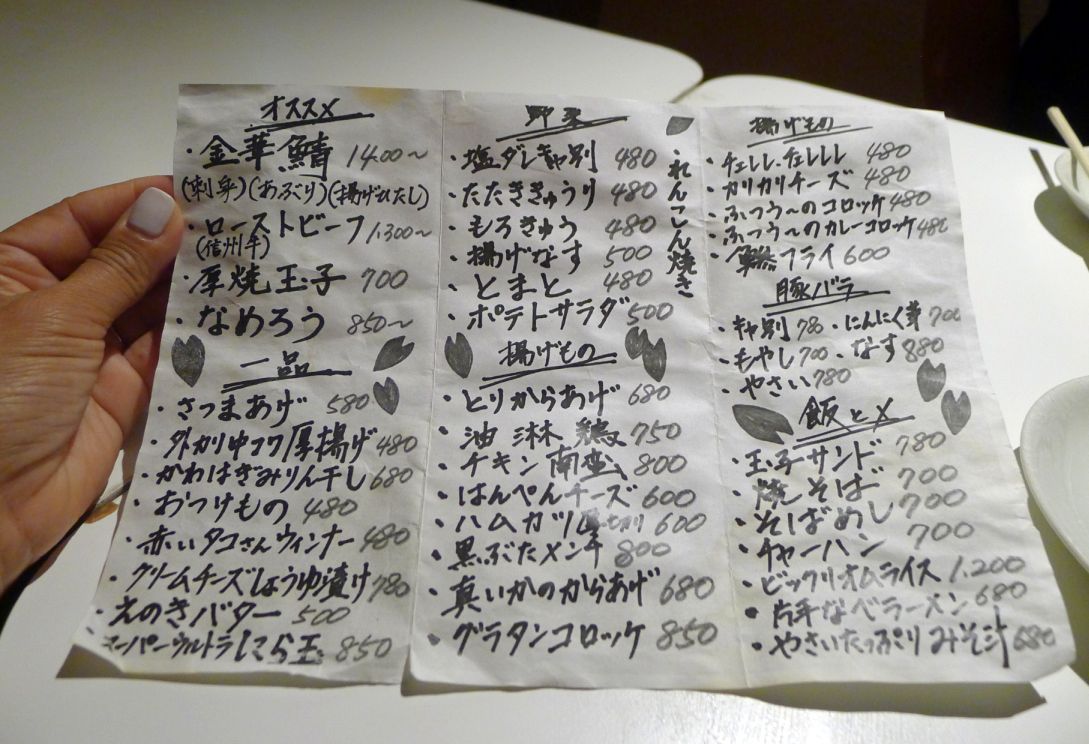 オススメ
・金華鯖 1400～
(刺身)(あぶり)(揚げびたし)
・ローストビーフ 1,300～
(信州牛)
・厚焼玉子 700
・なめろう 850～
一品
・さつまあげ 580
・外カリ中フワ厚揚げ 480
・かわはぎみりん干し 680
・おつけもの 480
・赤いタコさんウィンナー 480
・クリームチーズしょうゆ漬け 780
・えのきバター 500
・スーパーウルトラにら玉 850
野菜
・塩ダレキャ別 480
・たたききゅうり 480
・もろきゅう 480
・揚げなす 500
・とまと 480
・ポテトサラダ 500
・れんこん焼き
揚げもの
・とりからあげ 680
・油淋鶏 750
・チキン南蛮 800
・はんぺんチーズ 600
・ハムカツ厚切り 600
・黒ぶたメンチ 800
・真いかのからあげ 680
・グラタンコロッケ 850
揚げもの
・チェレレ、チェレレレ 480
・カリカリチーズ 480
・ふつう～のコロッケ 480
・ふつう～のカレーコロッケ 480
・鯵フライ 600
豚バラ
・キャ別 780 ・にんにく芽 700
・もやし 700 ・なす 880
・やさい 780
飯とメ
・玉子サンド 780
・焼そば 700
・そばめし 700
・チャーハン 700
・ビックリオムライス 1,200
・片手なべラーメン 680
・やさいたっぷりみそ汁 680